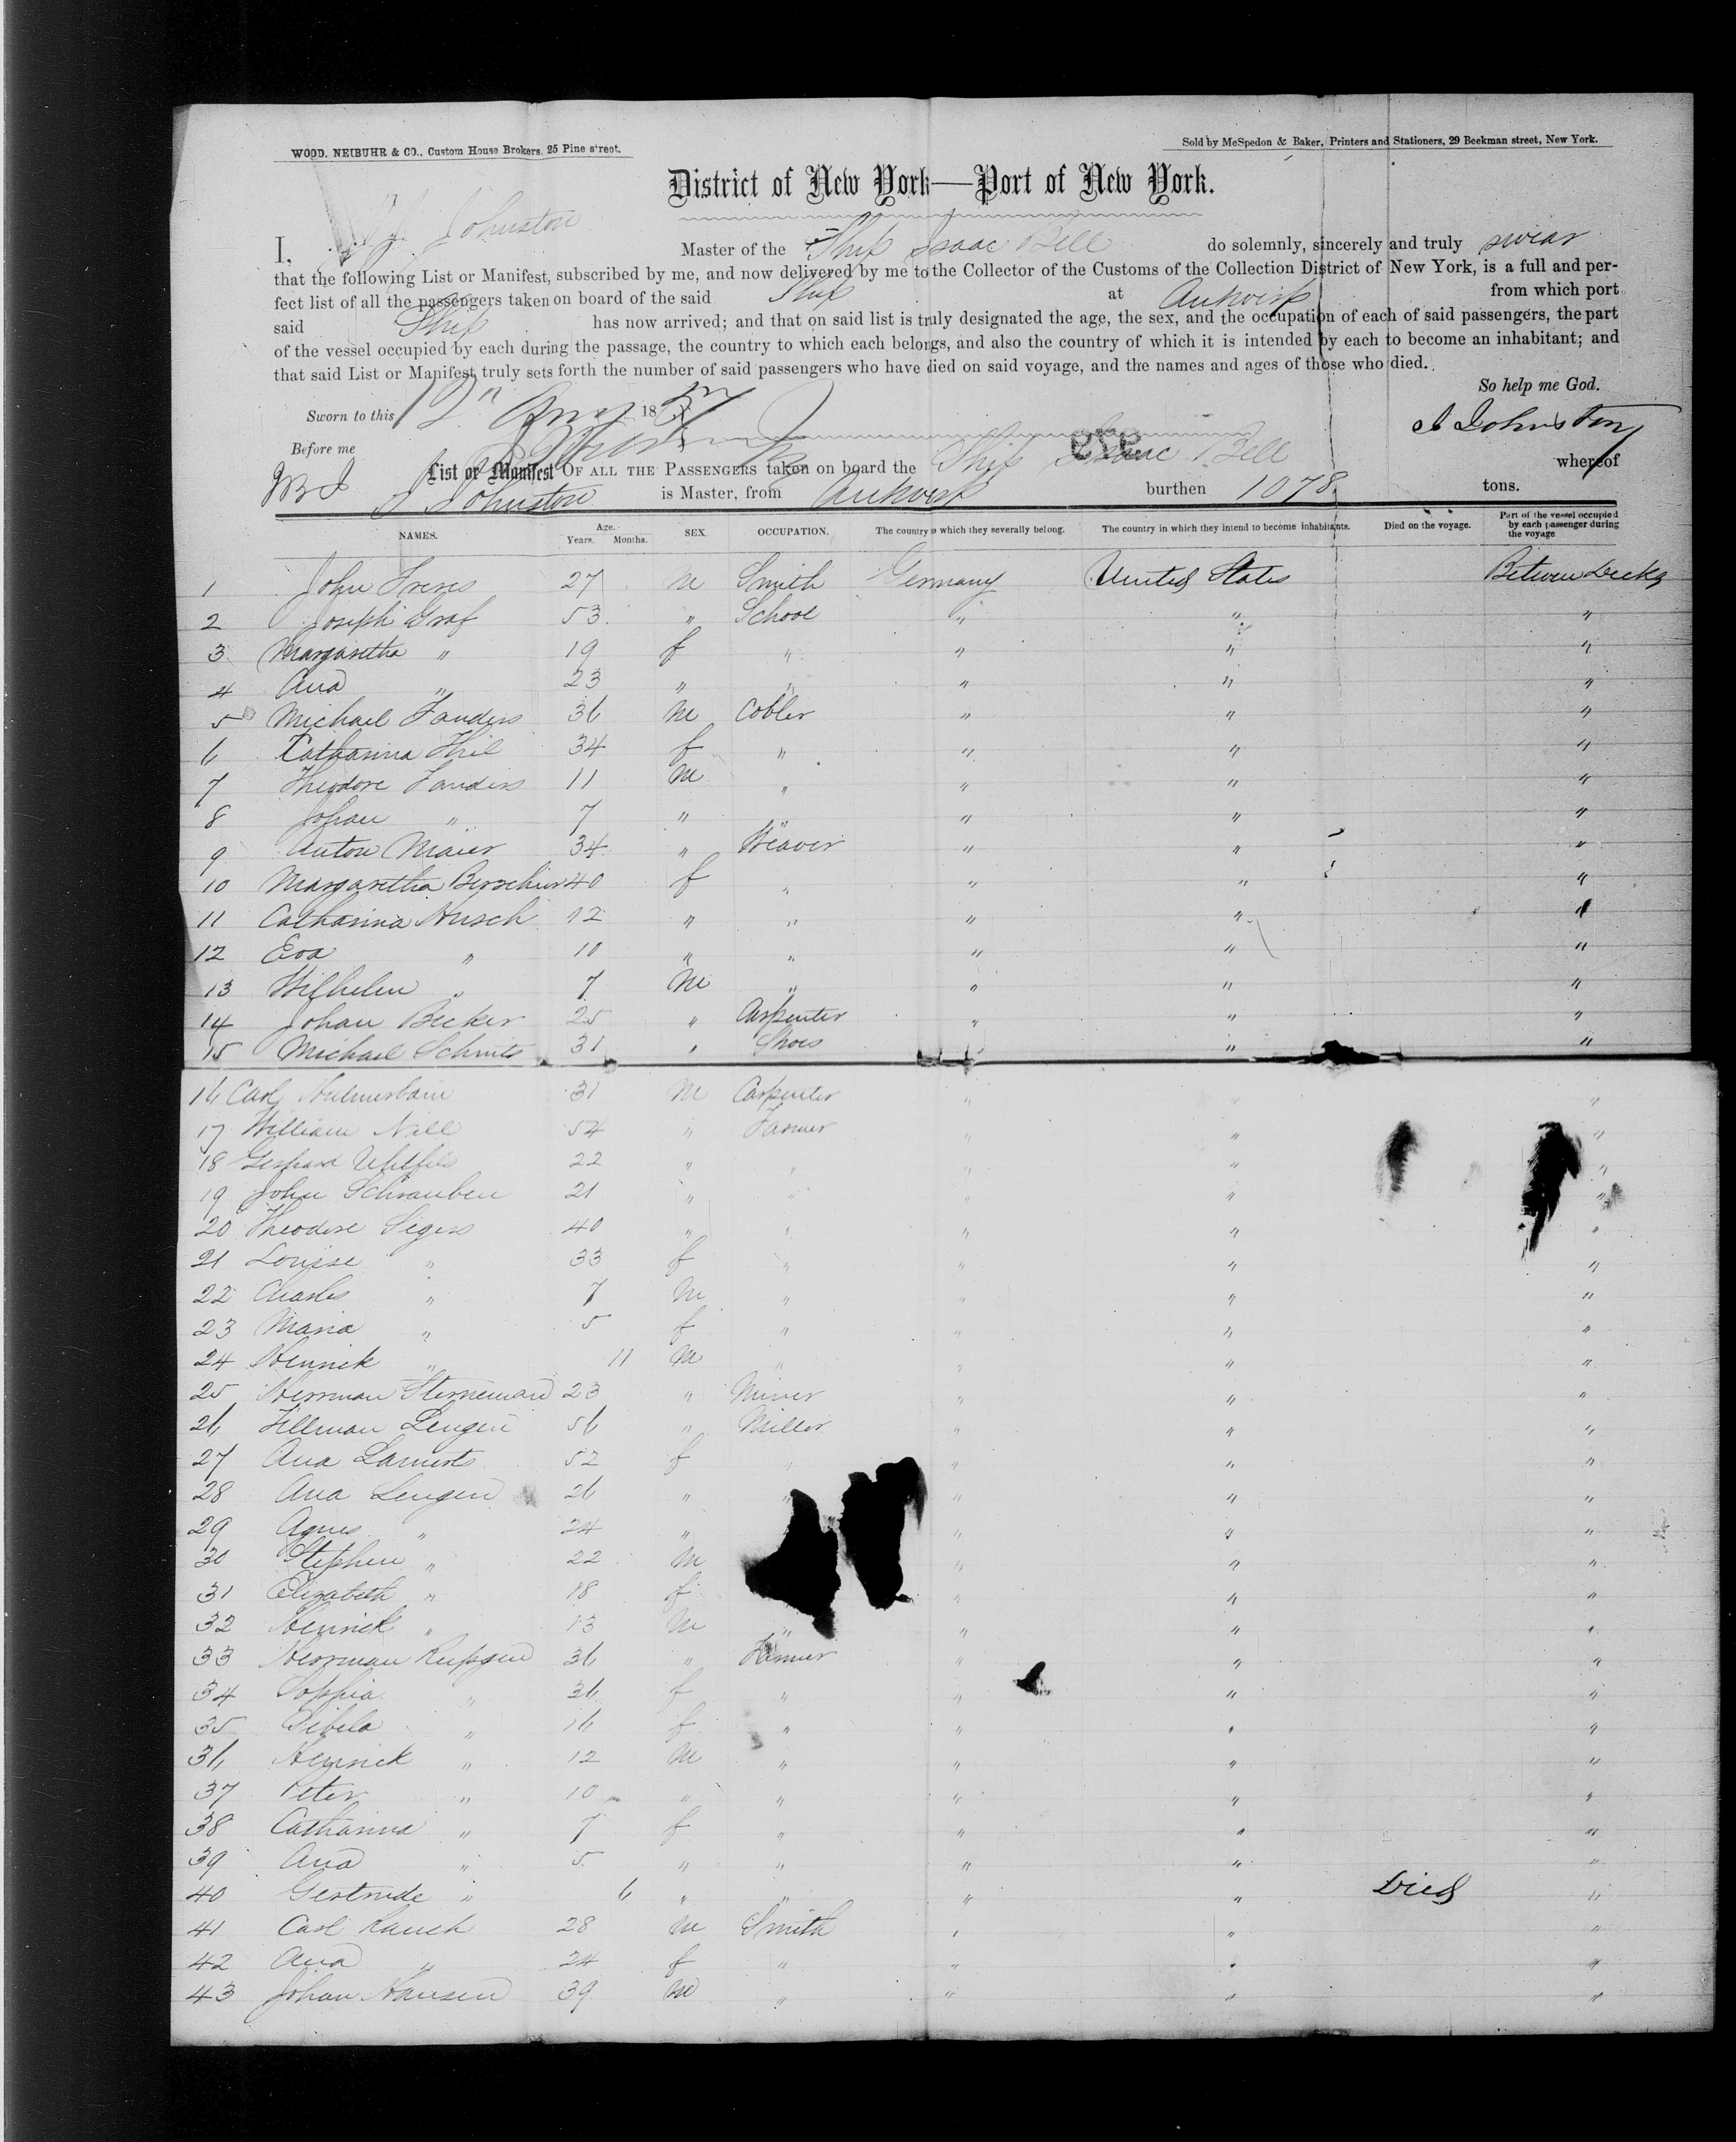 WOOD, NEIBUHR & CO., Custom House Brokers, 25 Pine street.
Sold by McSpedon & Baker, Printers and Stationers, 29 Beekman street, New York.
District of New York—Port of New York.
I, Johnston Master of the Ship Isaac Bell do solemnly, sincerely and truly swear
that the following List or Manifest, subscribed by me, and now delivered by me to the Collector of the Customs of the Collection District of New York, is a full and per-
fect list of all the passengers taken on board of the said Ship at Antwerp from which port
said Ship has now arrived; and that on said list is truly designated the age, the sex, and the occupation of each of said passengers, the part
of the vessel occupied by each during the passage, the country to which each belongs, and also the country of which it is intended by each to become an inhabitant; and
that said List or Manifest truly sets forth the number of said passengers who have died on said voyage, and the names and ages of those who died.
So help me God.
Sworn to this 12 1857
J Johnston
Before me
List or Manifest OF ALL THE PASSENGERS taken on board the Ship Isaac Bell whereof
J Johnston is Master, from Antwerp burthen 1078 tons.
NAMES. Age. Years. Months. SEX. OCCUPATION. The country to which they severally belong. The country in which they intend to become inhabitants. Died on the voyage. Part of the vessel occupied by each passenger during the voyage
1 John 27 m Smith Germany United States Between Decks
2 Joseph Graf 53 " School " " "
3 Margaretha " 19 f " " " "
4 Ana " 23 " " " " "
5 Michael Fanders 36 m Cobler " " "
6 Catharina Thil 34 f " " " "
7 Theodore Fanders 11 m " " " "
8 Johan " 7 " " " " "
9 Anton Maier 34 " Weaver " " "
10 Margaretha 40 f " " " "
11 Catharina Husch 12 " " " " "
12 Eva " 10 " " " " "
13 Wilhelm " 7 m " " " "
14 Johan Becker 25 " Carpenter " " "
15 Michael Schmits 31 " Shoes " " "
16 Carl 31 m Carpenter " " "
17 William Nill 54 " Farmer " " "
18 Gerhard 22 " " " " "
19 John Schrauben 21 " " " " "
20 Theodore Segers 40 " " " " "
21 Louise " 33 f " " " "
22 Charles " 7 m " " " "
23 Maria " 5 f " " " "
24 Henrick " 11 m " " " "
25 Herrman Sterneman 23 " Miner " " "
26 Tillman Lengen 56 " Miller " " "
27 Ana Lamerts 52 f " " " "
28 Ana Lengen 26 " " " " "
29 Agnes " 24 " " " "
30 Stephen " 22 m " " "
31 Elizabeth " 18 f " " "
32 Henrick " 13 m " " " "
33 Herrman Ruppen 36 " Farmer " " "
34 Sophia " 36 f " " " "
35 Sibela " 16 f " " " "
36 Henrick " 12 m " " " "
37 Peter " 10 " " " " "
38 Catharina " 7 f " " " "
39 Ana " 5 " " " " "
40 Gertrude " 6 " " " " Died "
41 Carl Rauch 28 m Smith " " "
42 Ana " 24 f " " " "
43 Johan Hansen 39 m " " " "